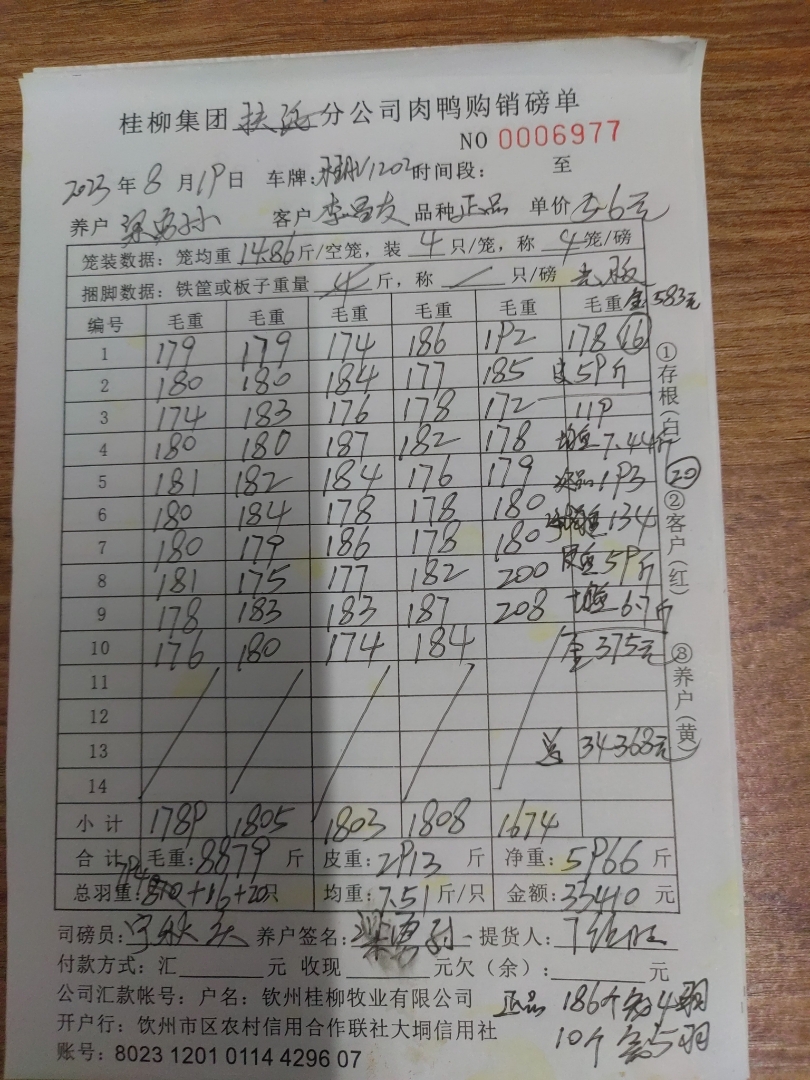 桂柳集团 分公司肉鸭购销磅单
NO 0006977
2023 年 8 月 19 日 车牌: 时间段: 至
养户 客户 李昌友 品种 正品 单价 5.6元
笼装数据:笼均重 14.86 斤/空笼,装 4 只/笼,称 4 笼/磅
捆脚数据:铁筐或板子重量 4 斤,称 / 只/磅
编号 毛重 毛重 毛重 毛重 毛重 毛重 金583元
1 179 179 174 186 192 178 16
2 180 180 184 177 185 皮59斤
3 174 183 176 178 172 119
4 180 180 187 182 178 均重7.44斤
5 181 182 184 176 179 次品193 20
6 180 184 178 178 180 134
7 180 179 186 178 180
8 181 175 177 182 200 皮重59斤
9 178 183 183 187 208 均重6.7斤
10 176 180 174 184 金375元
11
12
13 总34368元
14
小计 1789 1805 1803 1808 1674
合计 毛重:8879 斤 皮重:2913 斤 净重:5966 斤
总羽重: 794+16+20只 均重:7.51斤/只 金额:33410 元
①存根(白)
②客户(红)
③养户(黄)
司磅员: 养户签名: 梁勇孙 提货人:
付款方式:汇 元 收现 元欠(余): 元
公司汇款帐号:户名:钦州桂柳牧业有限公司 正品 186个 4羽
开户行:钦州市区农村信用合作联社大垌信用社 10个 5羽
账号:8023 1201 0114 4296 07